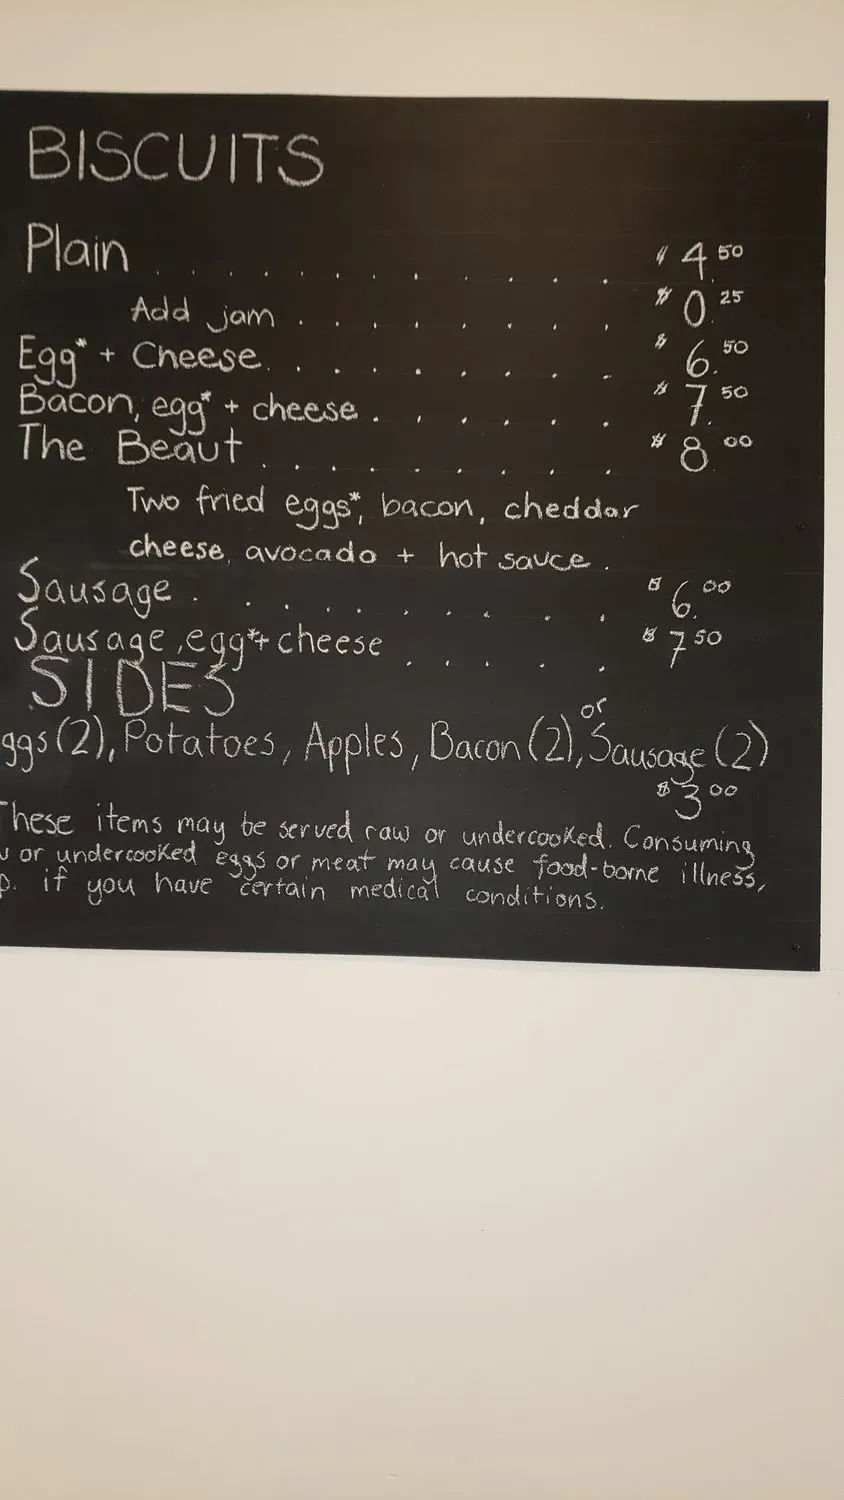 BISCUITS
Plain . . . . . . . . . . . $4.50
Add jam . . . . . . . . $0.25
Egg* + Cheese . . . . . . . . $6.50
Bacon, egg* + cheese . . . . . . $7.50
The Beaut . . . . . . . . $8.00
Two fried eggs*, bacon, cheddar
cheese, avocado + hot sauce.
Sausage . . . . . . . . . $6.00
Sausage, egg* + cheese . . . . . $7.50
SIDES
ggs (2), Potatoes, Apples, Bacon (2), or Sausage (2)
$3.00
These items may be served raw or undercooked. Consuming
or undercooked eggs or meat may cause food-borne illness,
p. if you have certain medical conditions.